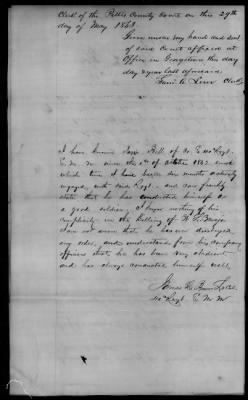 Clerk of the Pettis County Court on this 29th
day of May 1863
Given under my hand and seal
of said Court affixed at
Office in Georgetown this day
day & year last aforesaid.
Clerk
I have known Bell of Co. E 40 Regt.
E. M. M. since the of October 1862 since
which time I have been six months actively
engaged, with said Regt., and can frankly
state that he has conducted himself as
a good soldier, I know nothing of his
complicity in the killing of
I am not aware that he has ever disobeyed
any order, and understand from his Company
officers that he has been very obedient
and has always conducted himself well.
James
40 Regt E. M. M